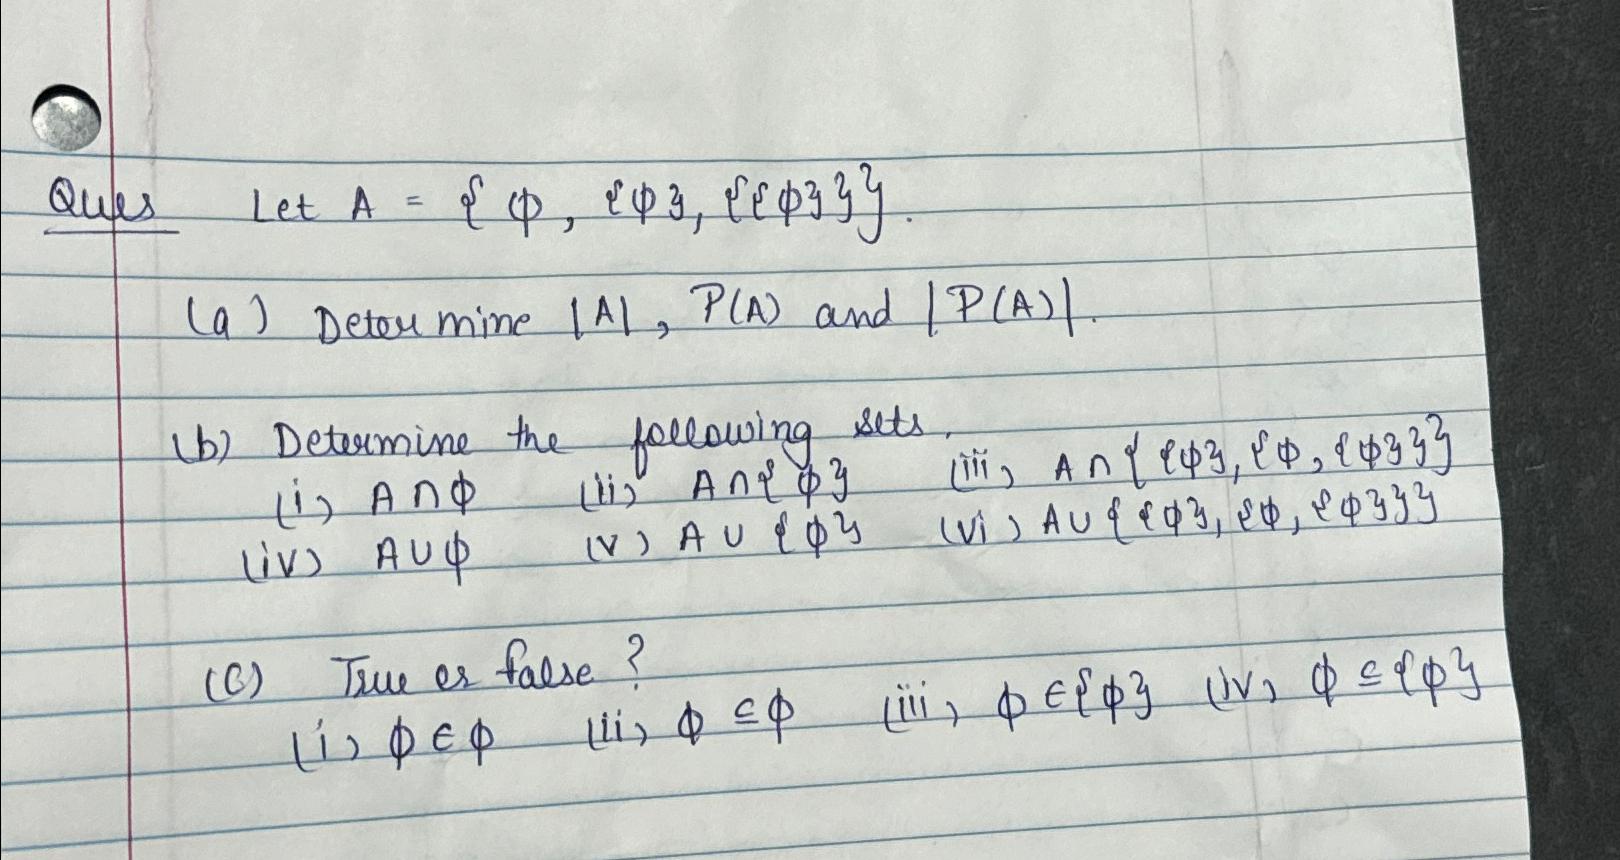 Ques Let A = { ϕ, {ϕ}, {{ϕ}}}.
(a) Determine |A|, P(A) and |P(A)|.
(b) Determine the following sets.
(i) A∩ϕ (ii) A∩{ϕ} (iii) A∩{{ϕ}, {ϕ, {ϕ}}}
(iv) A∪ϕ (v) A∪{ϕ} (vi) A∪{{ϕ}, {ϕ, {ϕ}}}
(c) True or false?
(i) ϕ∈ϕ (ii) ϕ⊆ϕ (iii) ϕ∈{ϕ} (iv) ϕ⊆{ϕ}